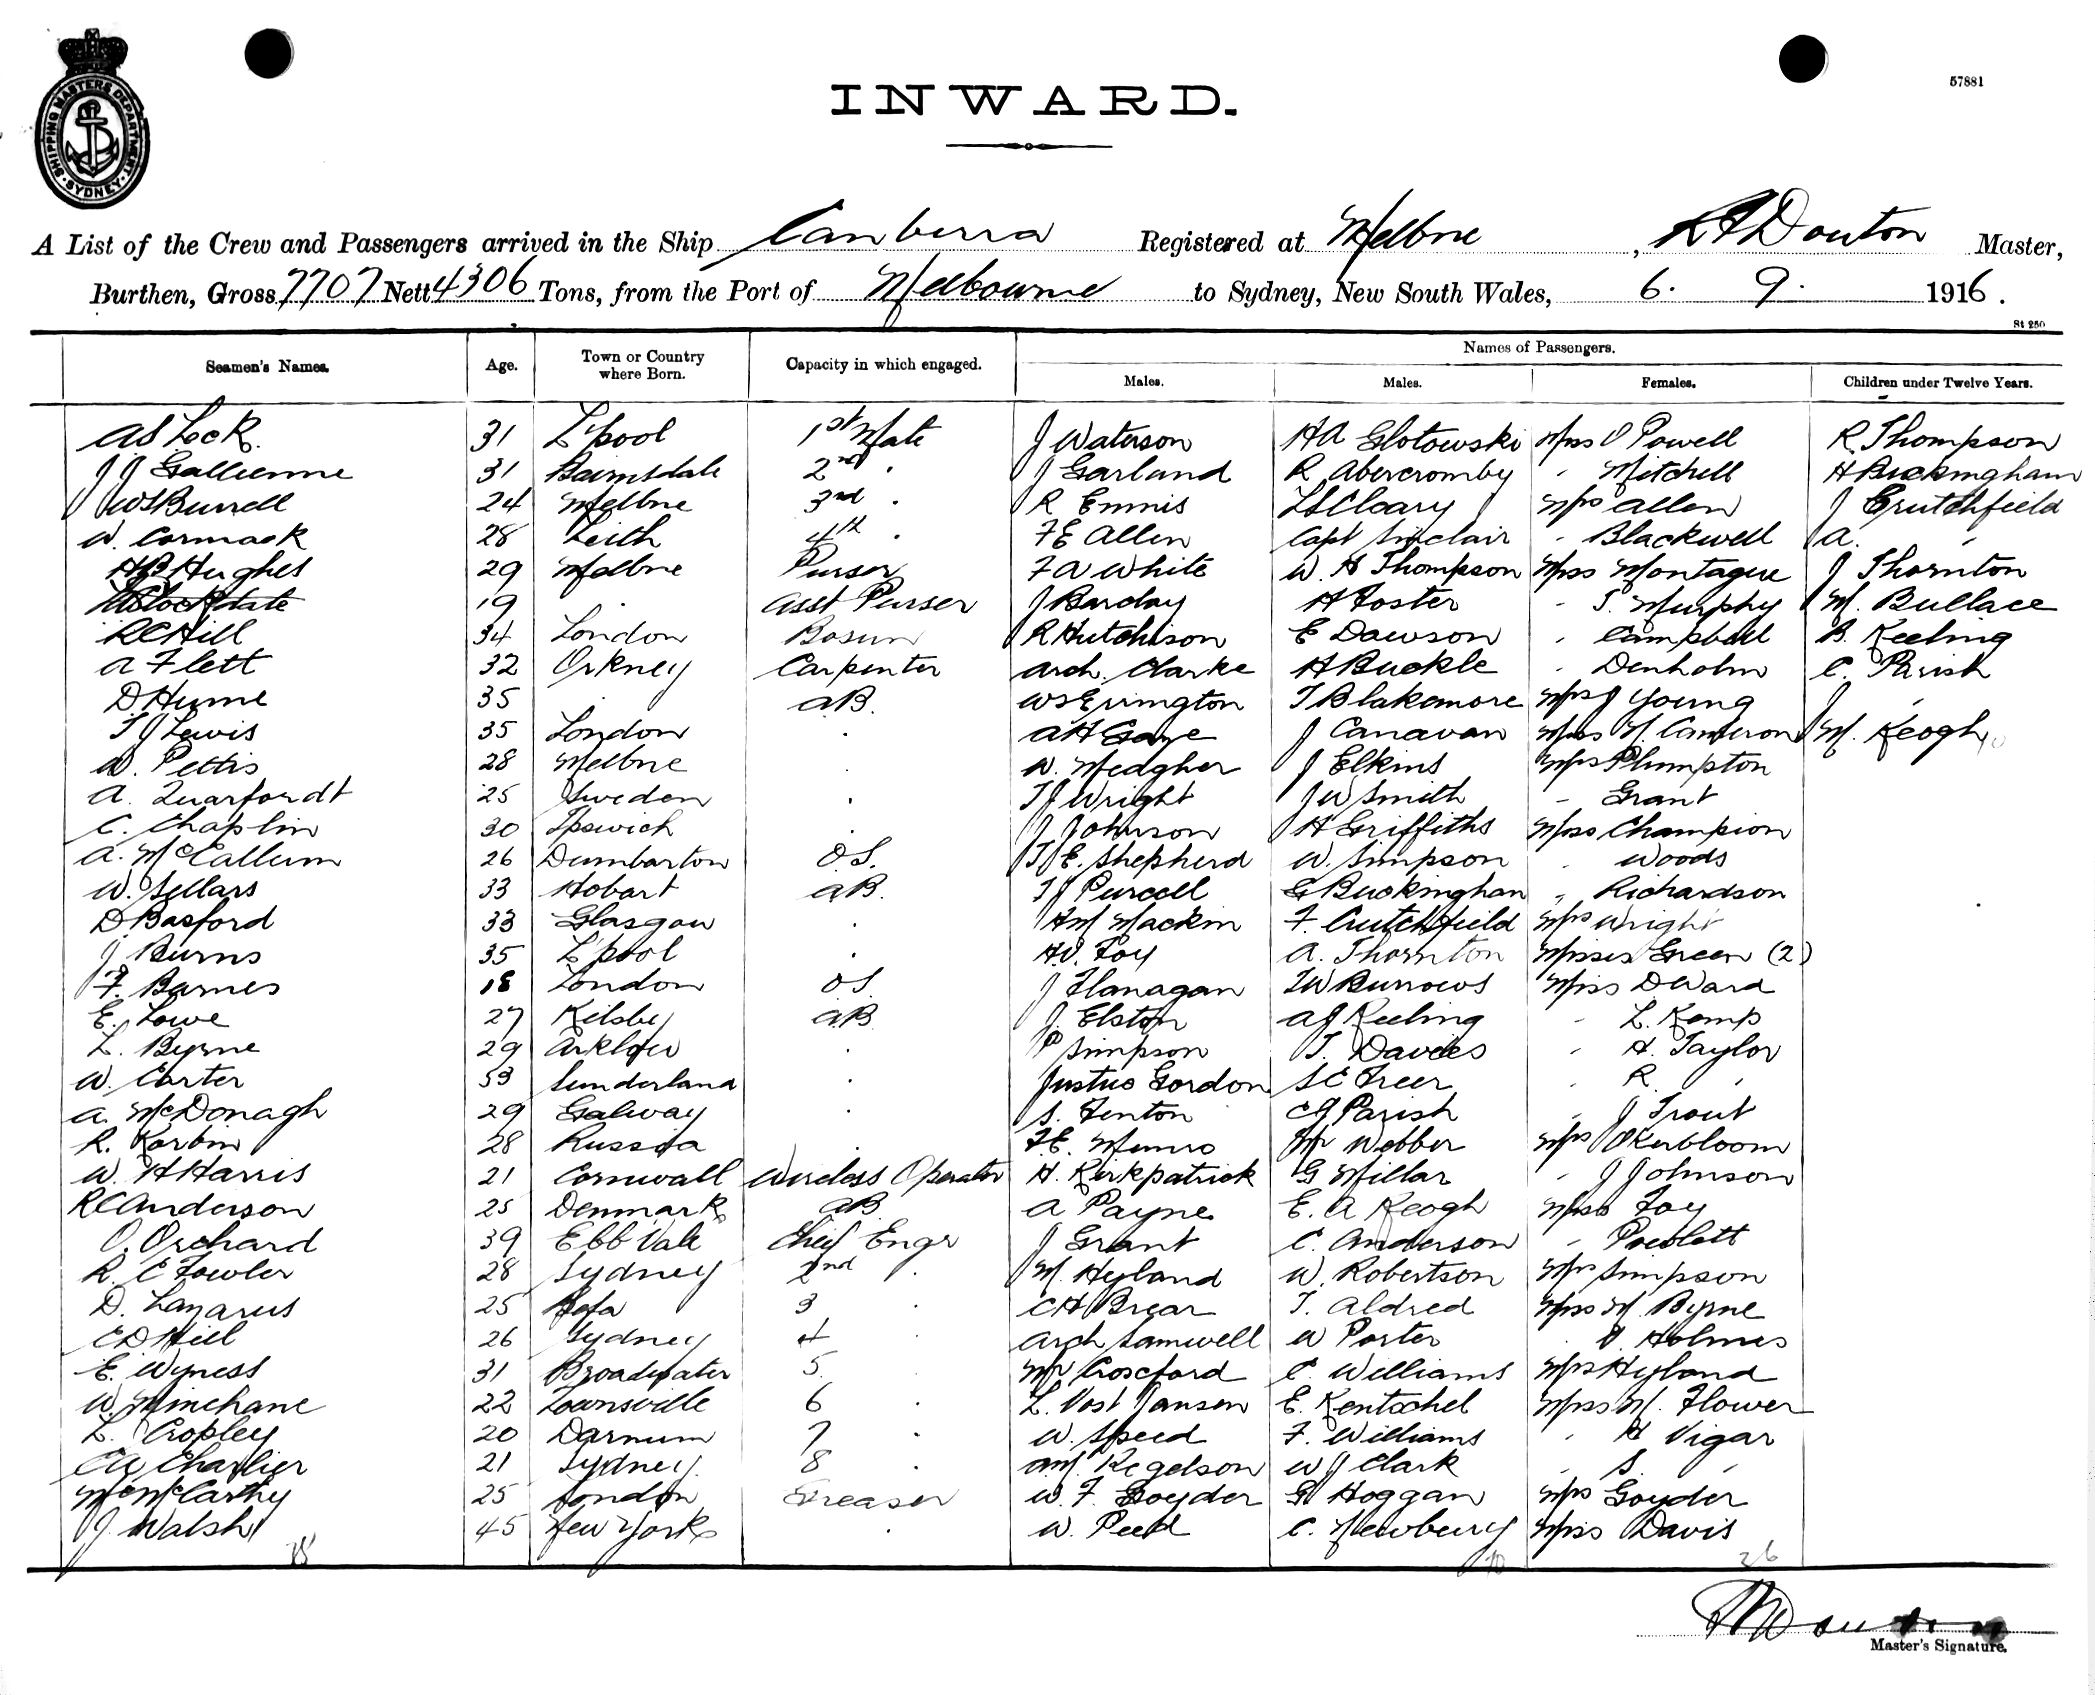 SHIPPING MASTERS DEPARTMENT
SYDNEY
57881
INWARD.
A List of the Crew and Passengers arrived in the Ship Canberra Registered at Melbne, Master,
Burthen, Gross 7707 Nett 4306 Tons, from the Port of Melbourne to Sydney, New South Wales, 6. 9. 1916.
St 250
Seamen's Names. Age. Town or Country where Born. Capacity in which engaged. Names of Passengers.
Males. Males. Females. Children under Twelve Years.
A S Lock 31 L'pool 1st Mate J Waterson H A Glotowski Miss O Powell R Thompson
J J Gallienne 31 Bairnsdale 2nd " J Garland R Abercromby " Mitchell H Buckingham
W S Burrell 24 Melbne 3rd " R Ennis Cleary Mrs Allen J Crutchfield
W. Cormack 28 Leith 4th " F E Allen Capt Sinclair " Blackwell A. "
H B Hughes 29 Melbne Purser F A White W. H Thompson Miss Montague J Thornton
19 Asst Purser J Barclay H Foster " T. Murphy M. Bullace
R C Hill 34 London Bosun R Hutchison E Dawson " Campbell B. Keeling
A Flett 32 Orkney Carpenter Arch. Clarke H Buckle " Denholm C. Parish
D Hume 35 " AB. W S Errington T Blakemore Mrs J Young J "
T J Lewis 35 London " A H Gaze J Canavan Miss M. Cameron M. Keogh
W. Pettis 28 Melbne " W. Meagher J Elkins Mrs Plumpton
A. Quarfordt 25 Sweden " T J Wright J W Smith " Grant
C. Chaplin 30 Ipswich " J Johnson H Griffiths Miss Champion
A. McCallum 26 Dumbarton OS. T E. Shepherd W. Simpson " Woods
W. Sellars 33 Hobart AB. T J Purcell G Buckingham " Richardson
D Basford 33 Glasgow " H M Mackin F. Crutchfield Mrs Wright
J Burns 35 L'pool " H V. Foy A. Thornton Misses Green (2)
F. Barnes 18 London OS J Flanagan T W Burrows Miss D Ward
E. Lowe 27 Kilsby AB J. Elston A J Keeling " L. Kemp
L. Byrne 29 Arklow " P Simpson T. Davies " A. Taylor
W. Carter 53 Sunderland " Justus Gordon S E Freer " R. "
A. McDonagh 29 Galway " S. Fenton C J Parish " J Trout
R. Korbin 28 Russia " F. E. Munro Mr Webber Mrs Okerbloom
W. H Harris 21 Cornwall Wireless Operator H. Kirkpatrick G Millar " J Johnson
R C Anderson 25 Denmark AB A Payne E. A Keogh Miss Foy
O. Orchard 39 Ebb Vale Chief Engr J Grant C. Anderson "
R. C Fowler 28 Sydney 2nd " M. Hyland W. Robertson Mrs Simpson
D. Lazarus 25 3 " C H Brear T. Aldred Miss M. Byrne
C D Hill 26 Sydney 4 " Arch Samwell W Porter " V. Holmes
E. Wyness 31 Broadwater 5 " Mr Croxford C. Williams Mrs Hyland
W. Minehane 22 Townsville 6 " L. Vost Jansen E. Kentschel Miss M. Flower
L. Cropley 20 Darnum 7 " W. Speed F. Williams " H Vigar
Charlier 21 Sydney 8 " Kegelson W J Clark " S. "
McCarthy 25 London Greaser W. F. Goyder G Hoggan Mrs Goyder
J. Walsh 45 New York " W. Peed C. Newbury Miss Davis
26
Master's Signature.